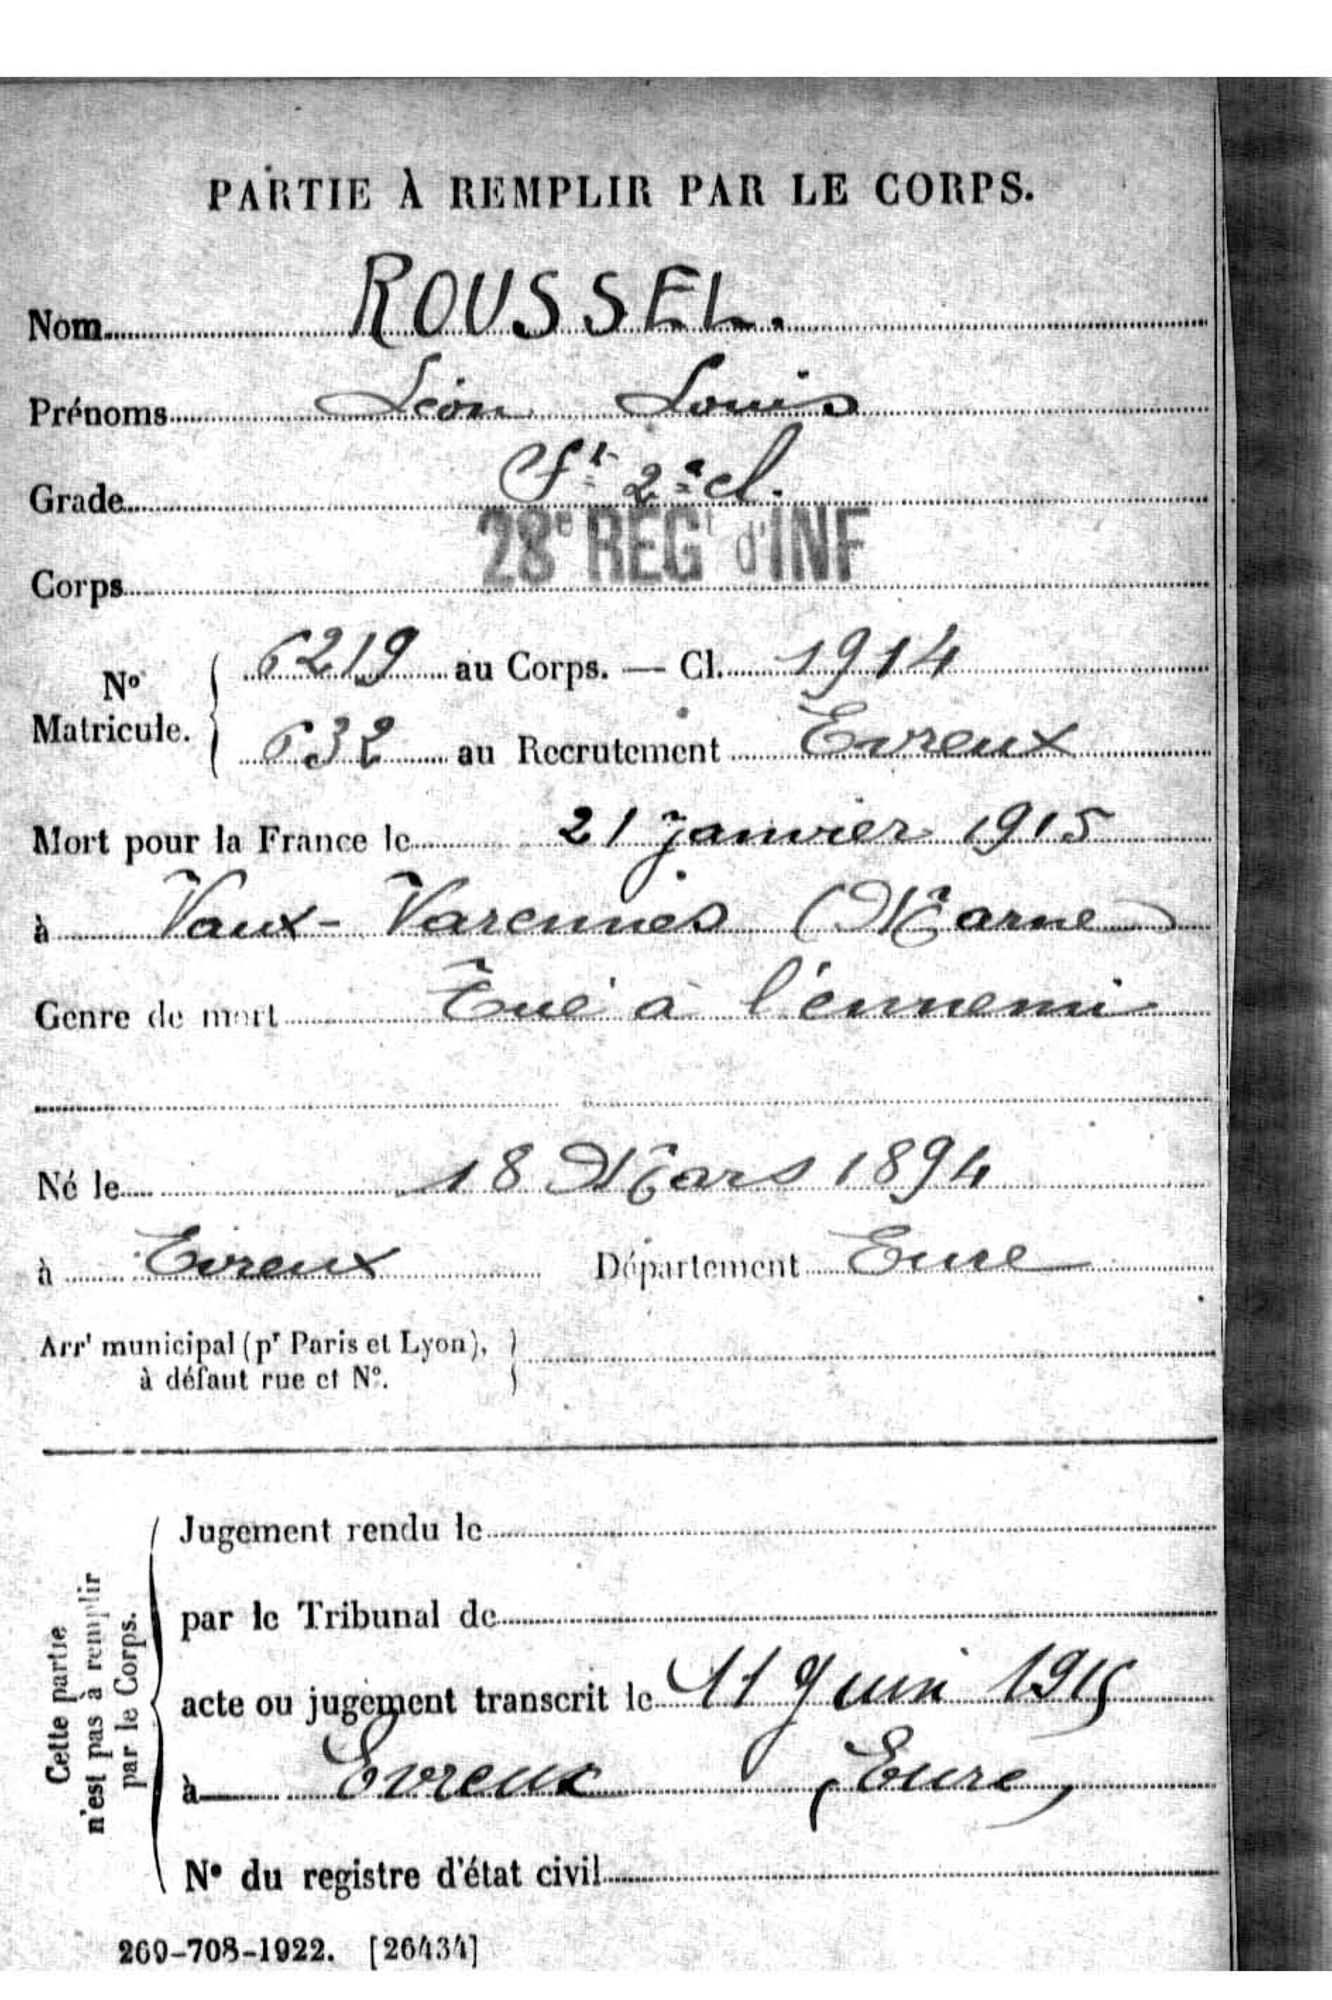 PARTIE À REMPLIR PAR LE CORPS.
Nom ROUSSEL.
Prénoms Léon Louis
Grade St 2e cl.
28e REGt d'INF
Corps
No Matricule. 6219 au Corps. — Cl. 1914
632 au Recrutement Evreux
Mort pour la France le 21 janvier 1915
à Vaux-Varennes (Marne)
Genre de mort Tué à l'ennemi
Né le 18 Mars 1894
à Evreux Département Eure
Arrt municipal (pr Paris et Lyon),
à défaut rue et No.
Cette partie
n'est pas à remplir
par le Corps.
Jugement rendu le
par le Tribunal de
acte ou jugement transcrit le 11 Juin 1915
à Evreux (Eure)
No du registre d'état civil
269-708-1922. [26434]